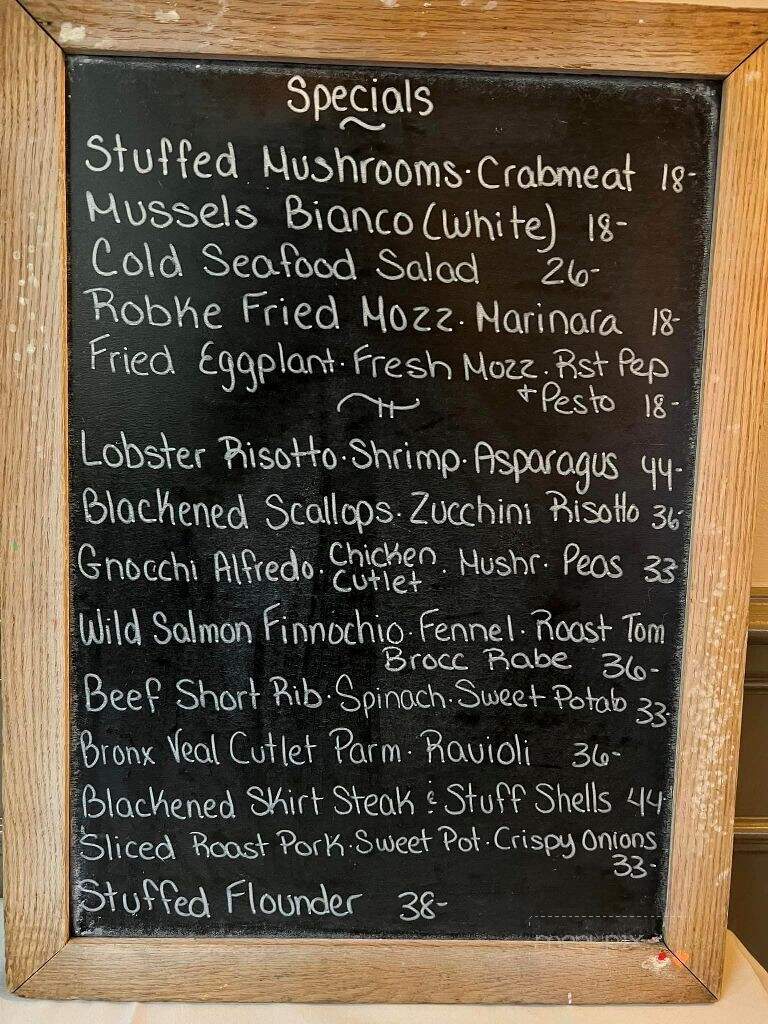 Specials
Stuffed Mushrooms · Crabmeat 18-
Mussels Bianco (White) 18-
Cold Seafood Salad 26-
Robke Fried Mozz · Marinara 18-
Fried Eggplant · Fresh Mozz · Rst Pep
+ Pesto 18-
Lobster Risotto · Shrimp · Asparagus 44-
Blackened Scallops · Zucchini Risotto 36-
Gnocchi Alfredo · Chicken Cutlet · Mushr · Peas 33
Wild Salmon Finnochio · Fennel · Roast Tom
Brocc Rabe 36-
Beef Short Rib · Spinach · Sweet Potato 33-
Bronx Veal Cutlet Parm · Ravioli 36-
Blackened Skirt Steak & Stuff Shells 44-
Sliced Roast Pork · Sweet Pot · Crispy Onions
33-
Stuffed Flounder 38-